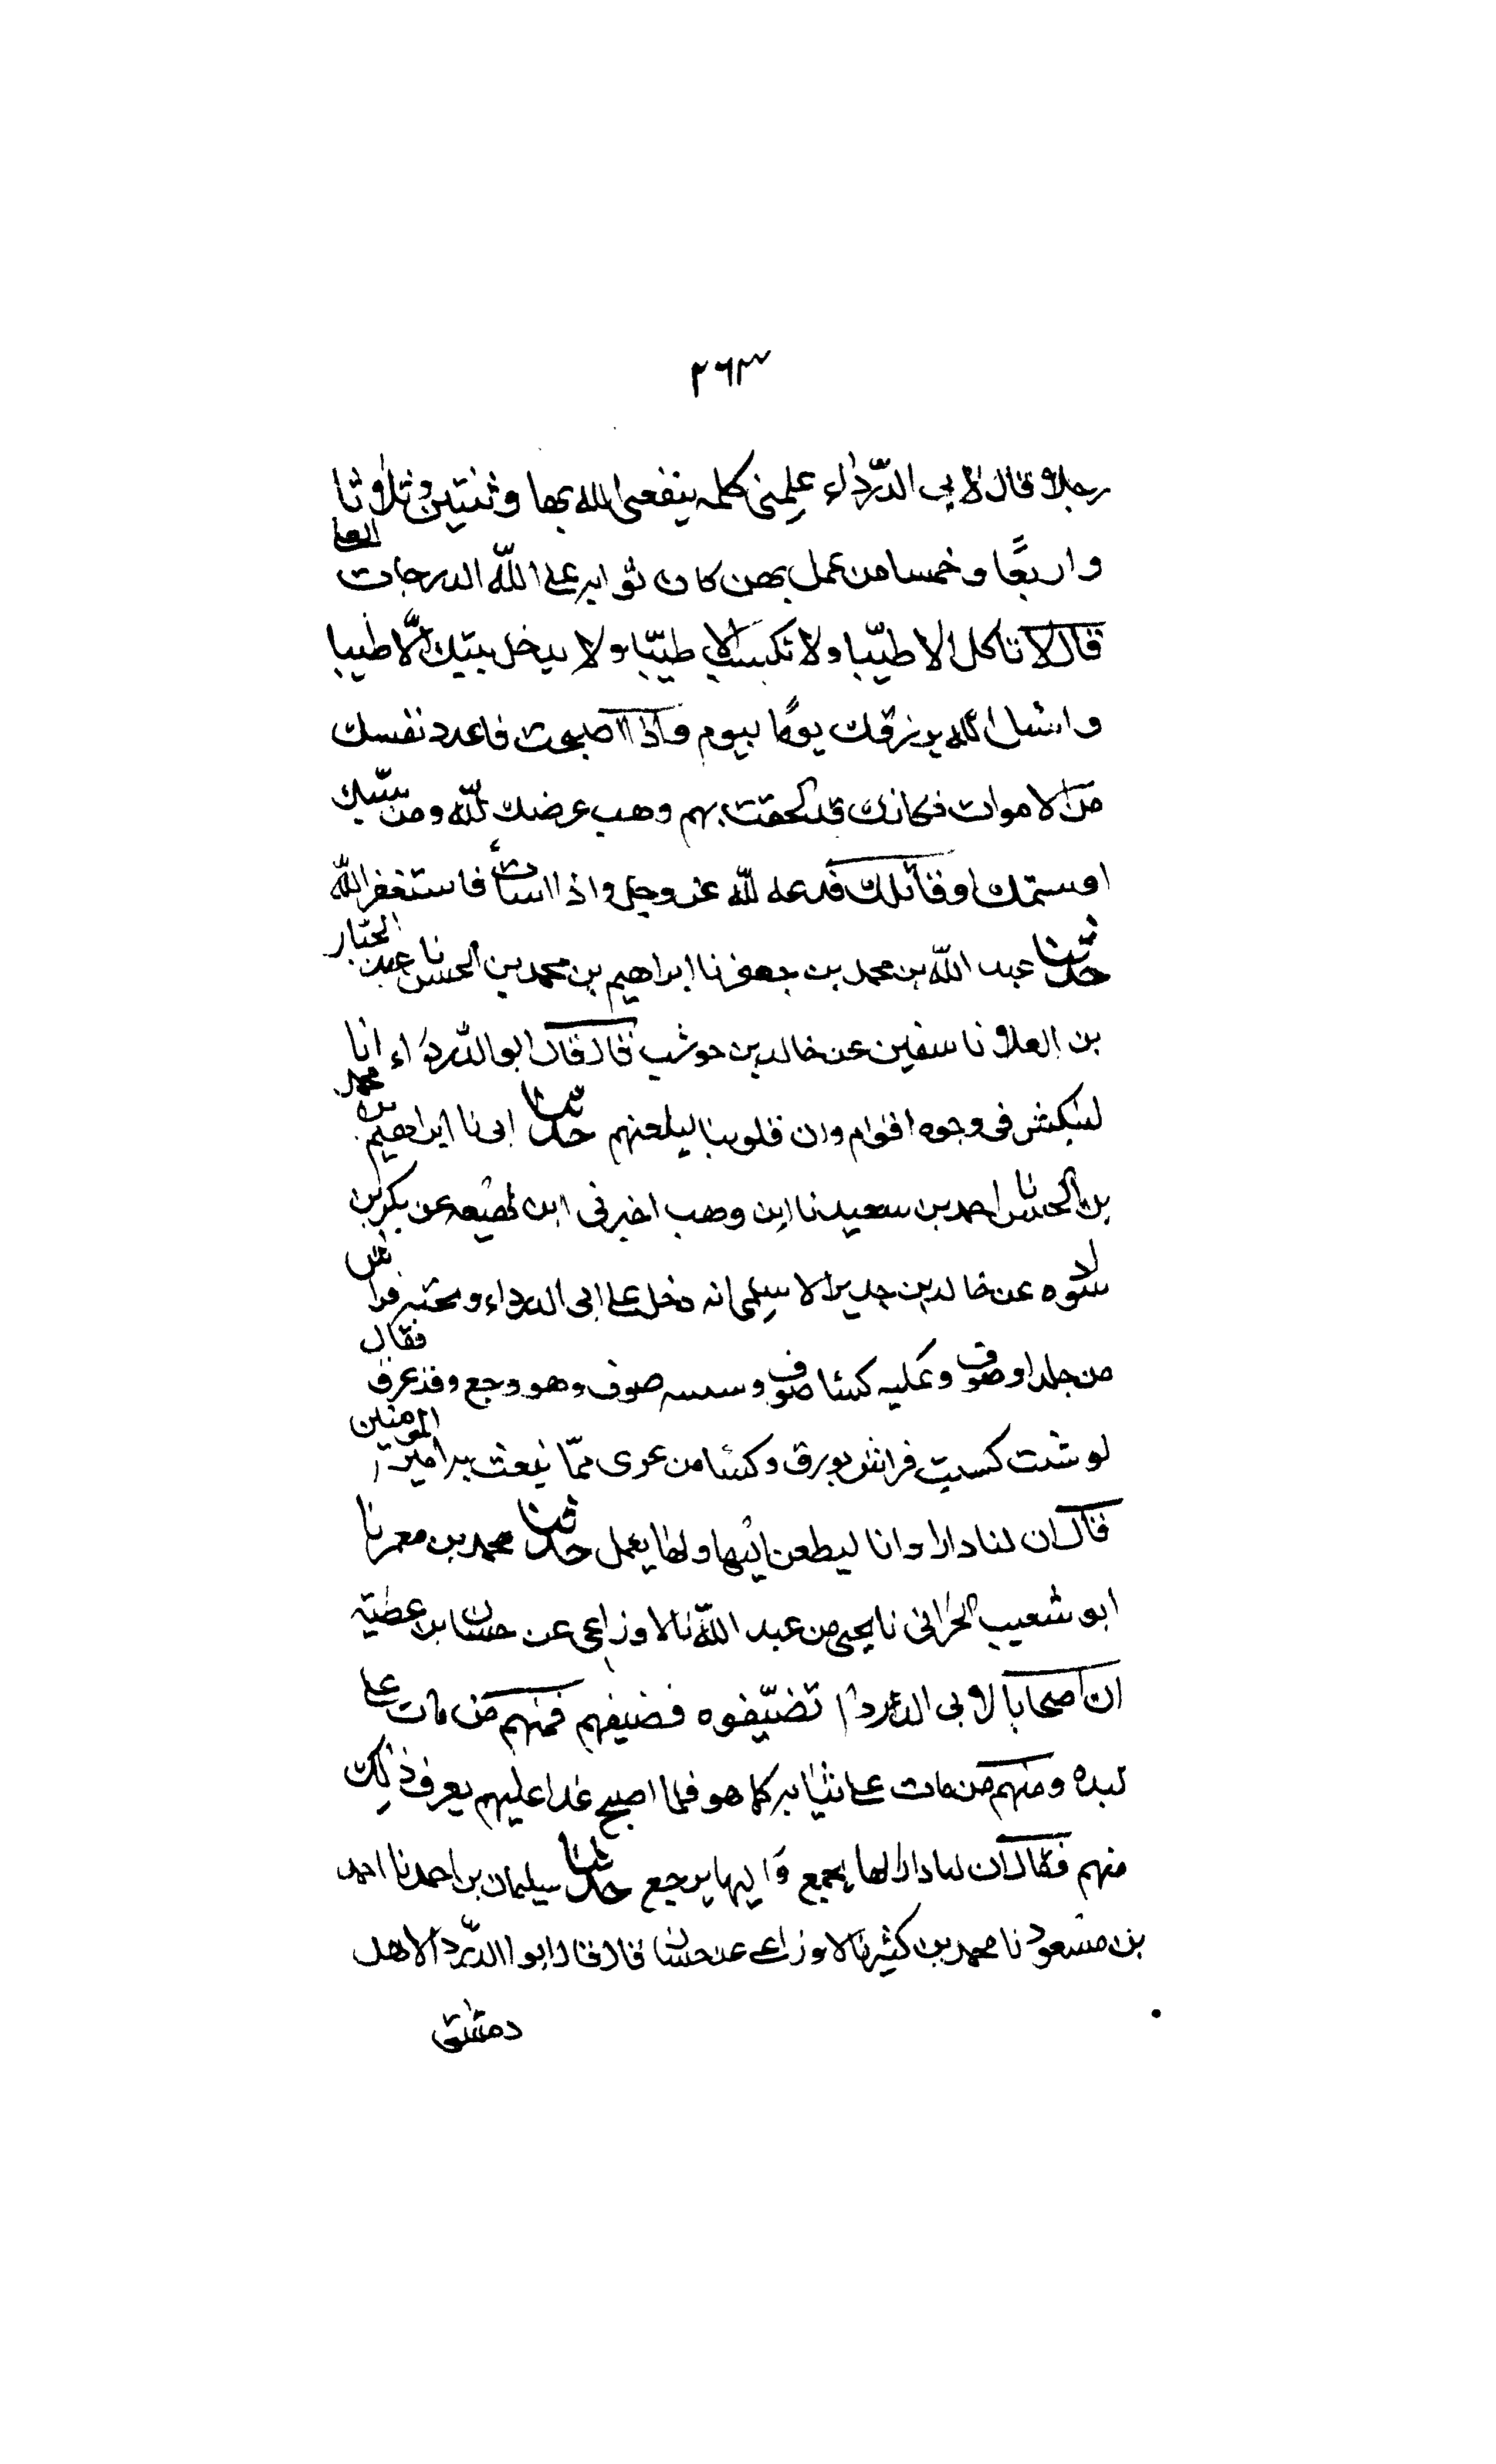 ٢٦٣
رجلا قال لابي الدّرداء علمنى كلمه ينفعنى الله بها وثنتين وثلاثا
واربعًا وخمسا من عمل بهن كان ثوابه على الله الدرجات العلا
قال لا تاكل الا طيّبا ولا تكسب الا طيّبا ولا يدخل بيتك الّا طيبا
واسئل الله يرزقك يومًا بيوم واذا اصبحت فاعدد نفسك
من الاموات فكانك قد لحقت بهم وهب عرضك للّه ومن سبّك
اوستمك او قاتلك فدعه للّه عز وجل واذا اسأت فاستغفر اللّه
حدّثنا عبد اللّه بن محمد بن جعفر نا ابراهيم بن محمد بن الحسن نا عبد الجبّار
بن العلا نا سفين عن خالد بن حوشب قال قال ابو الدّرداء انا
لنكشر فى وجوه اقوام وان قلوبنا ليلعنهم حدثنا ابى نا ابراهيم بن محمد
بن الحسن نا احمد بن سعيد نا ابن وهب اخبرنى ابن لهيعه عن بكر بن
سوادة عن خالد بن حدير الاسلمى انه دخل على ابى الدرداء وتحته فراش
من جلد او صوف وعليه كسا صوف وسبسه صوف وهو وجع وقد عرق فقال
لو شئت كسيت فراشك بورق وكسا من عرى ممّا يبعث به امير المومنين
قال ان لنا دارا وانا ليطعن اليها ولها يعمل حدثنا محمد بن معمر نا
ابو شعيب الحرانى نا يحيى بن عبد اللّه نا الاوزاعى عن حسان بن عطيّة
ان اصحابا لابى الدرداء تضيّفوه فضيفهم فمنهم من بات على
لبده ومنهم من بات على ثيابه كما هو فلما اصبح غدا عليهم يعرف ذلك
منهم فقال ان لنا دارا لها يجمع واليها يرجع حدثنا سليمان بن احمد نا احمد
بن مسعود نا محمد بن كثير نا الاوزاعى عن حسان قال قال ابو الدّردا لاهل
دمشق